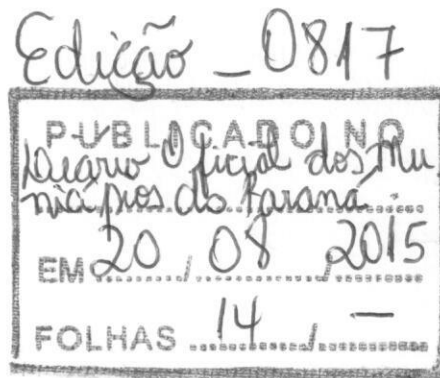 Edição _ 0817
PUBLICADO NO
Diário Oficial dos Mu
nicípios do Paraná.
EM 20 / 08 / 2015
FOLHAS 14 / —